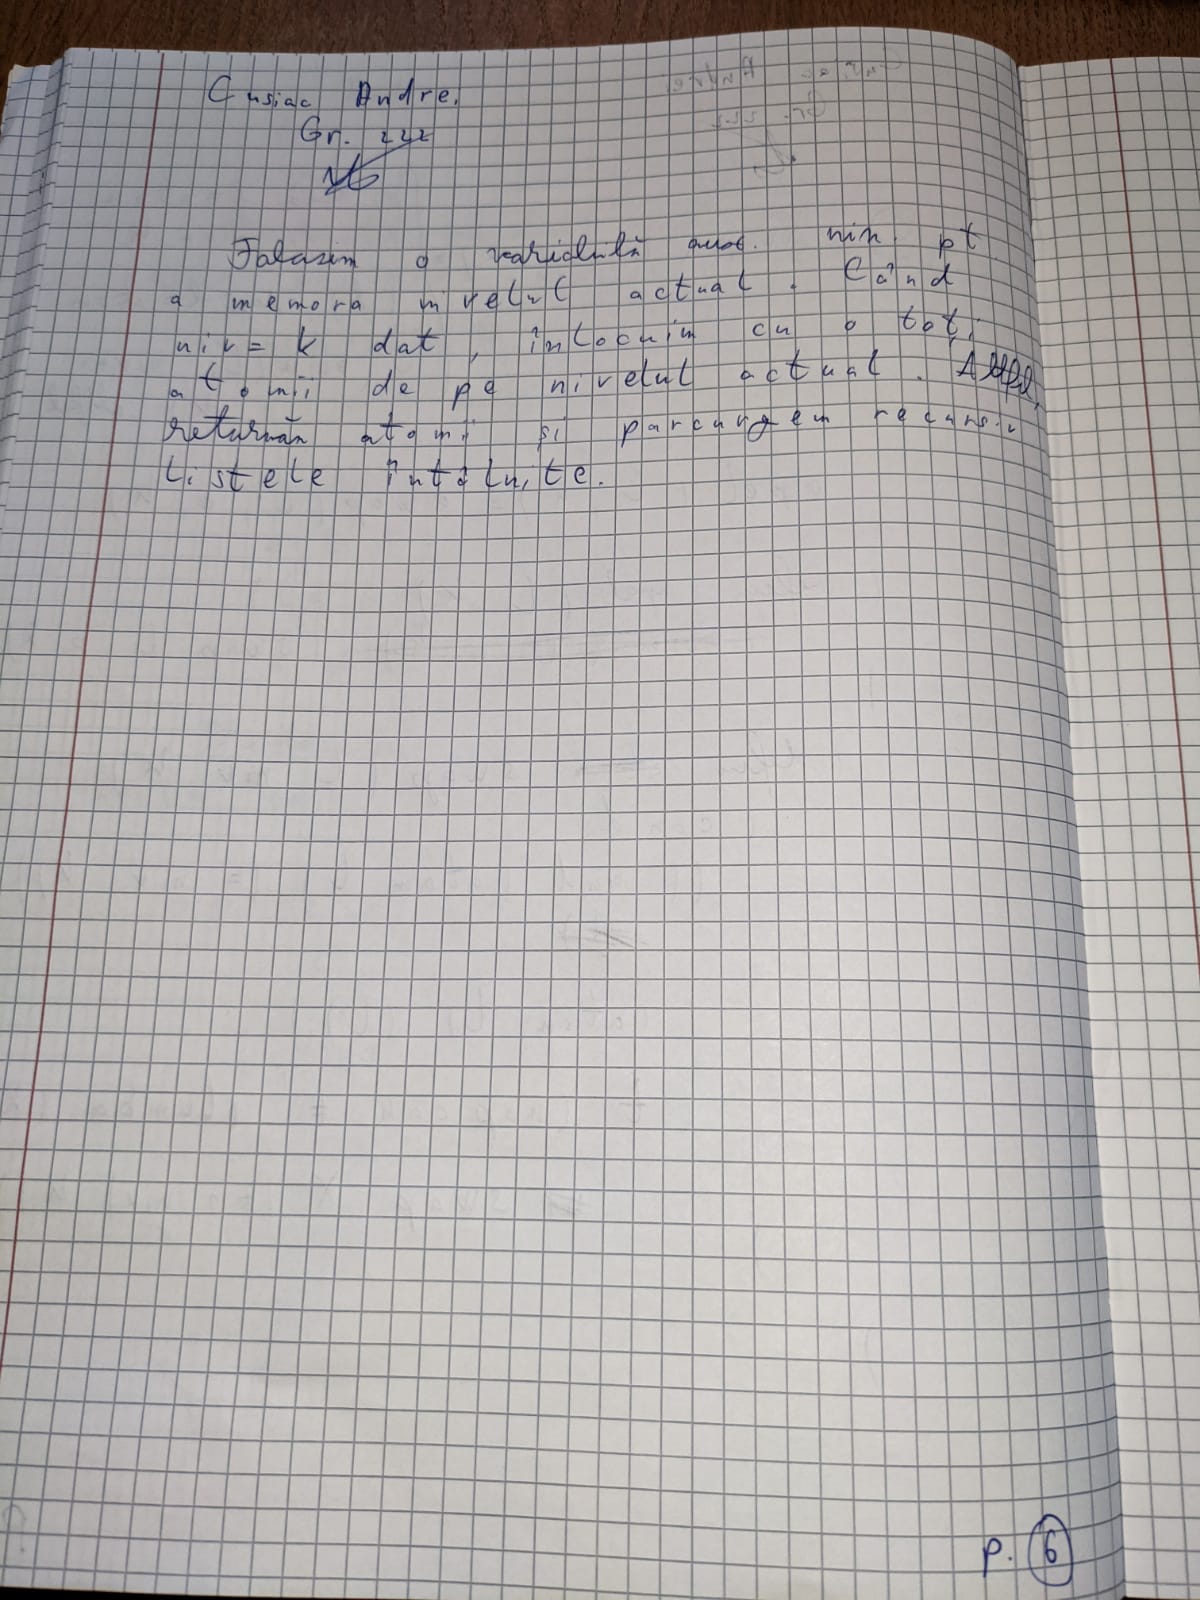 Cusiac Andrei
Gr. 222
Folosim o variabilă aux. niv. pt
a memora nivelul actual. Când
niv = k dat, înlocuim cu 0 toți
atomii de pe nivelul actual. Altfel,
returnăm atomii și parcurgem recursiv
listele întâlnite.
p. 6